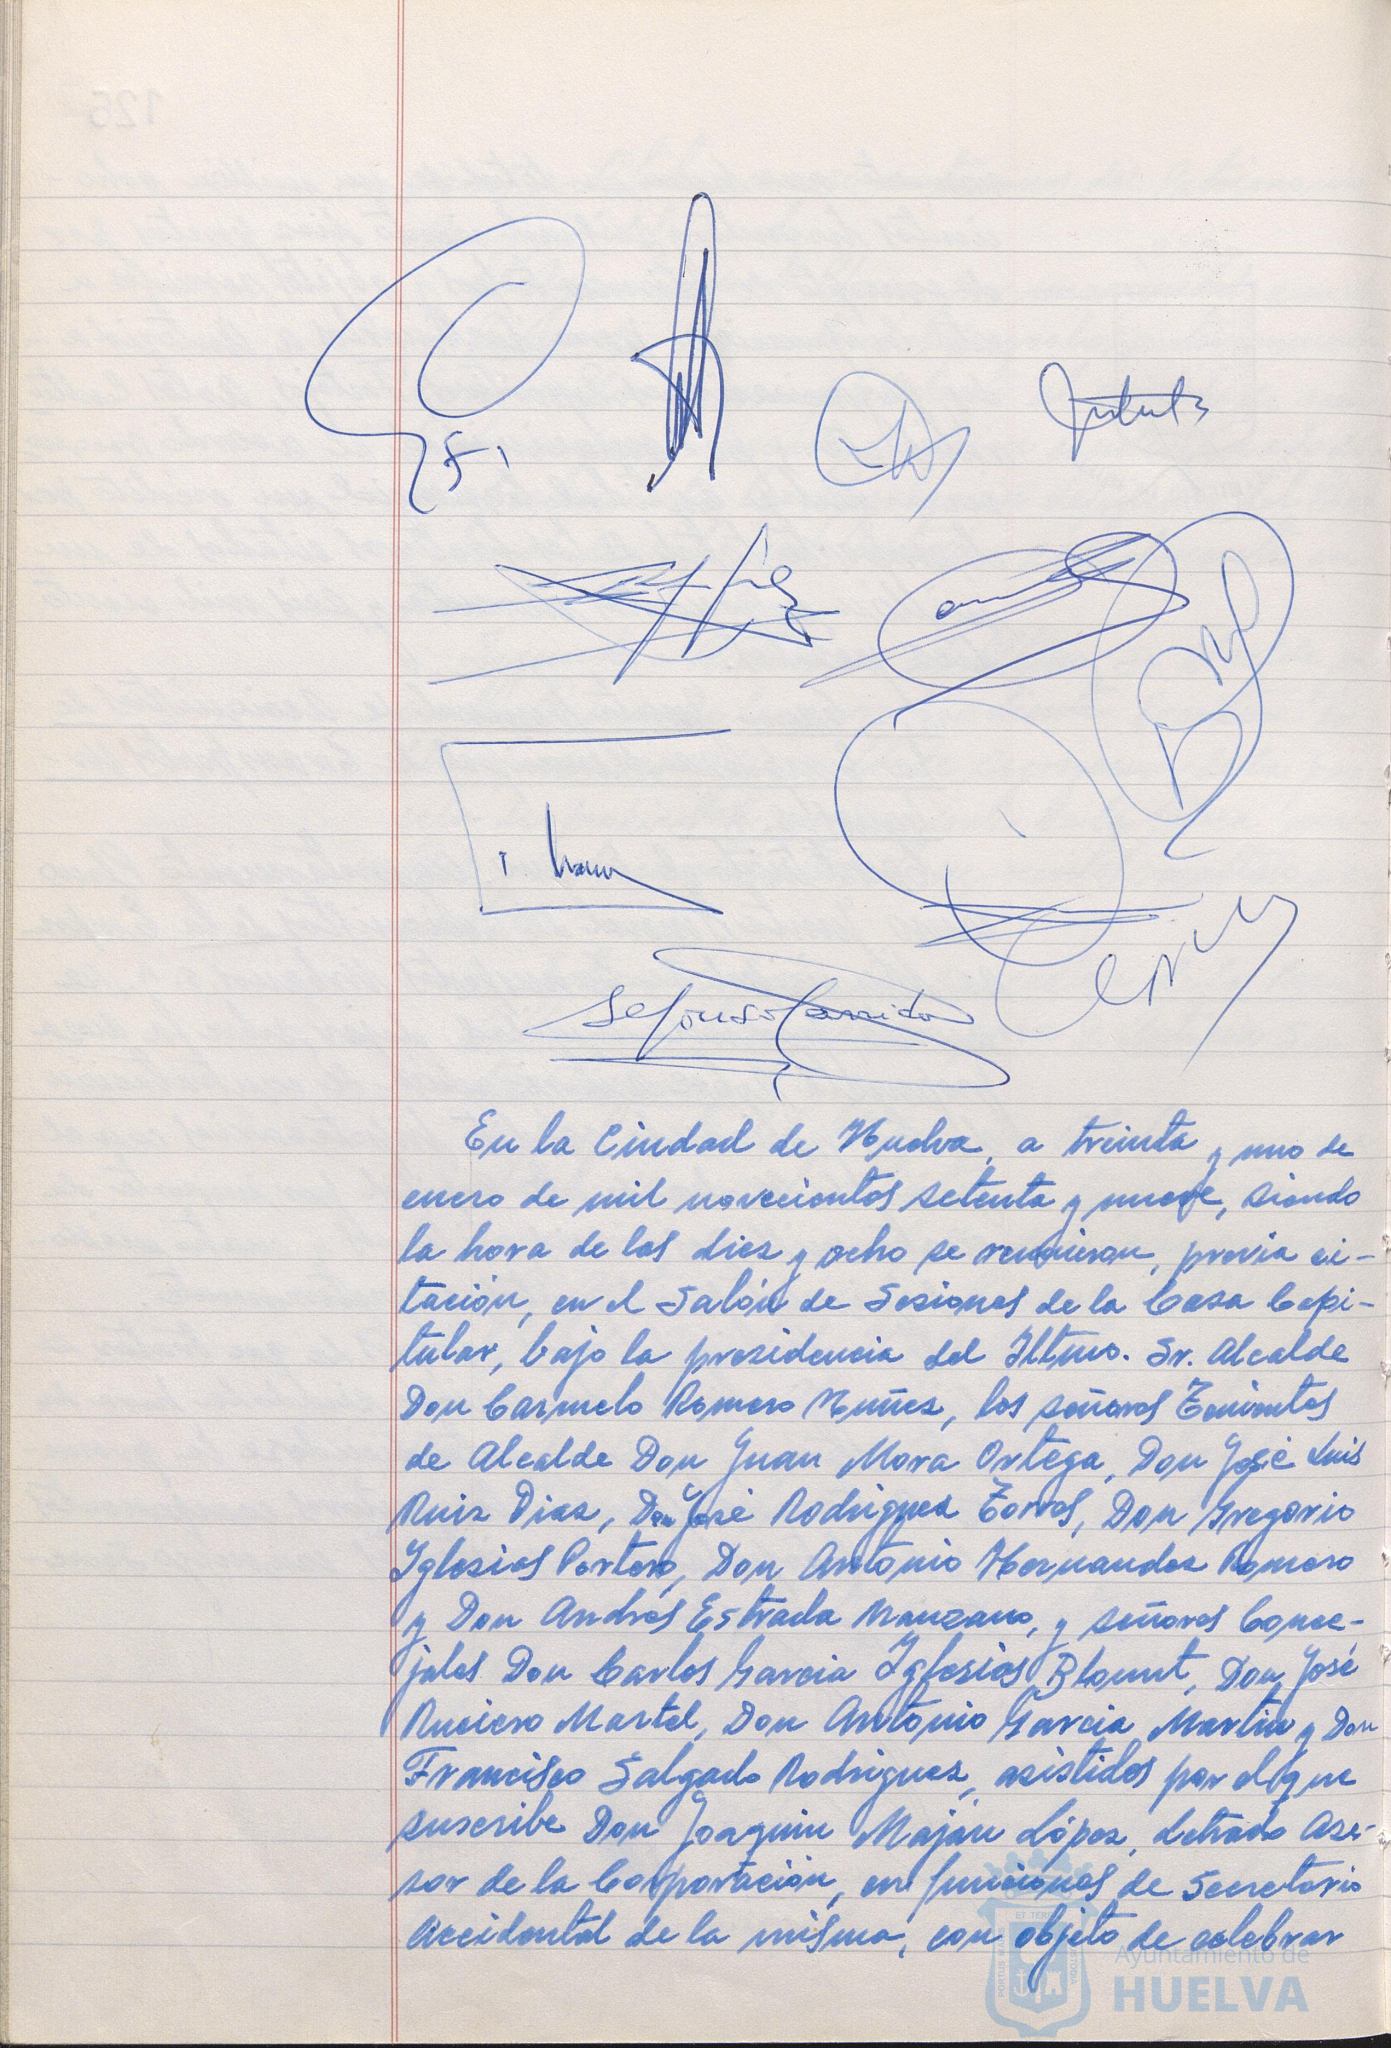 Ildefonso Garrido
En la Ciudad de Huelva, a treinta y uno de
enero de mil novecientos setenta y nueve, siendo
la hora de las diez y ocho se reunieron, previa ci-
tación, en el Salón de Sesiones de la Casa Capi-
tular, bajo la presidencia del Iltmo. Sr. Alcalde
Don Carmelo Romero Nuñez, los señores Tenientes
de Alcalde Don Juan Mora Ortega, Don José Luis
Ruiz Diaz, Don José Rodriguez Torres, Don Gregorio
Iglesias Portero, Don Antonio Hernandez Romero
y Don Andrés Estrada Manzano, y señores Conce-
jales Don Carlos Garcia Iglesias Blount, Don José
Ruciero Martel, Don Antonio Garcia Martin y Don
Francisco Salgado Rodriguez, asistidos por el que
suscribe Don Joaquin Maján López, Letrado Ase-
sor de la Corporación, en funciones de Secretario
Accidental de la misma, con objeto de celebrar
Ayuntamiento de
HUELVA